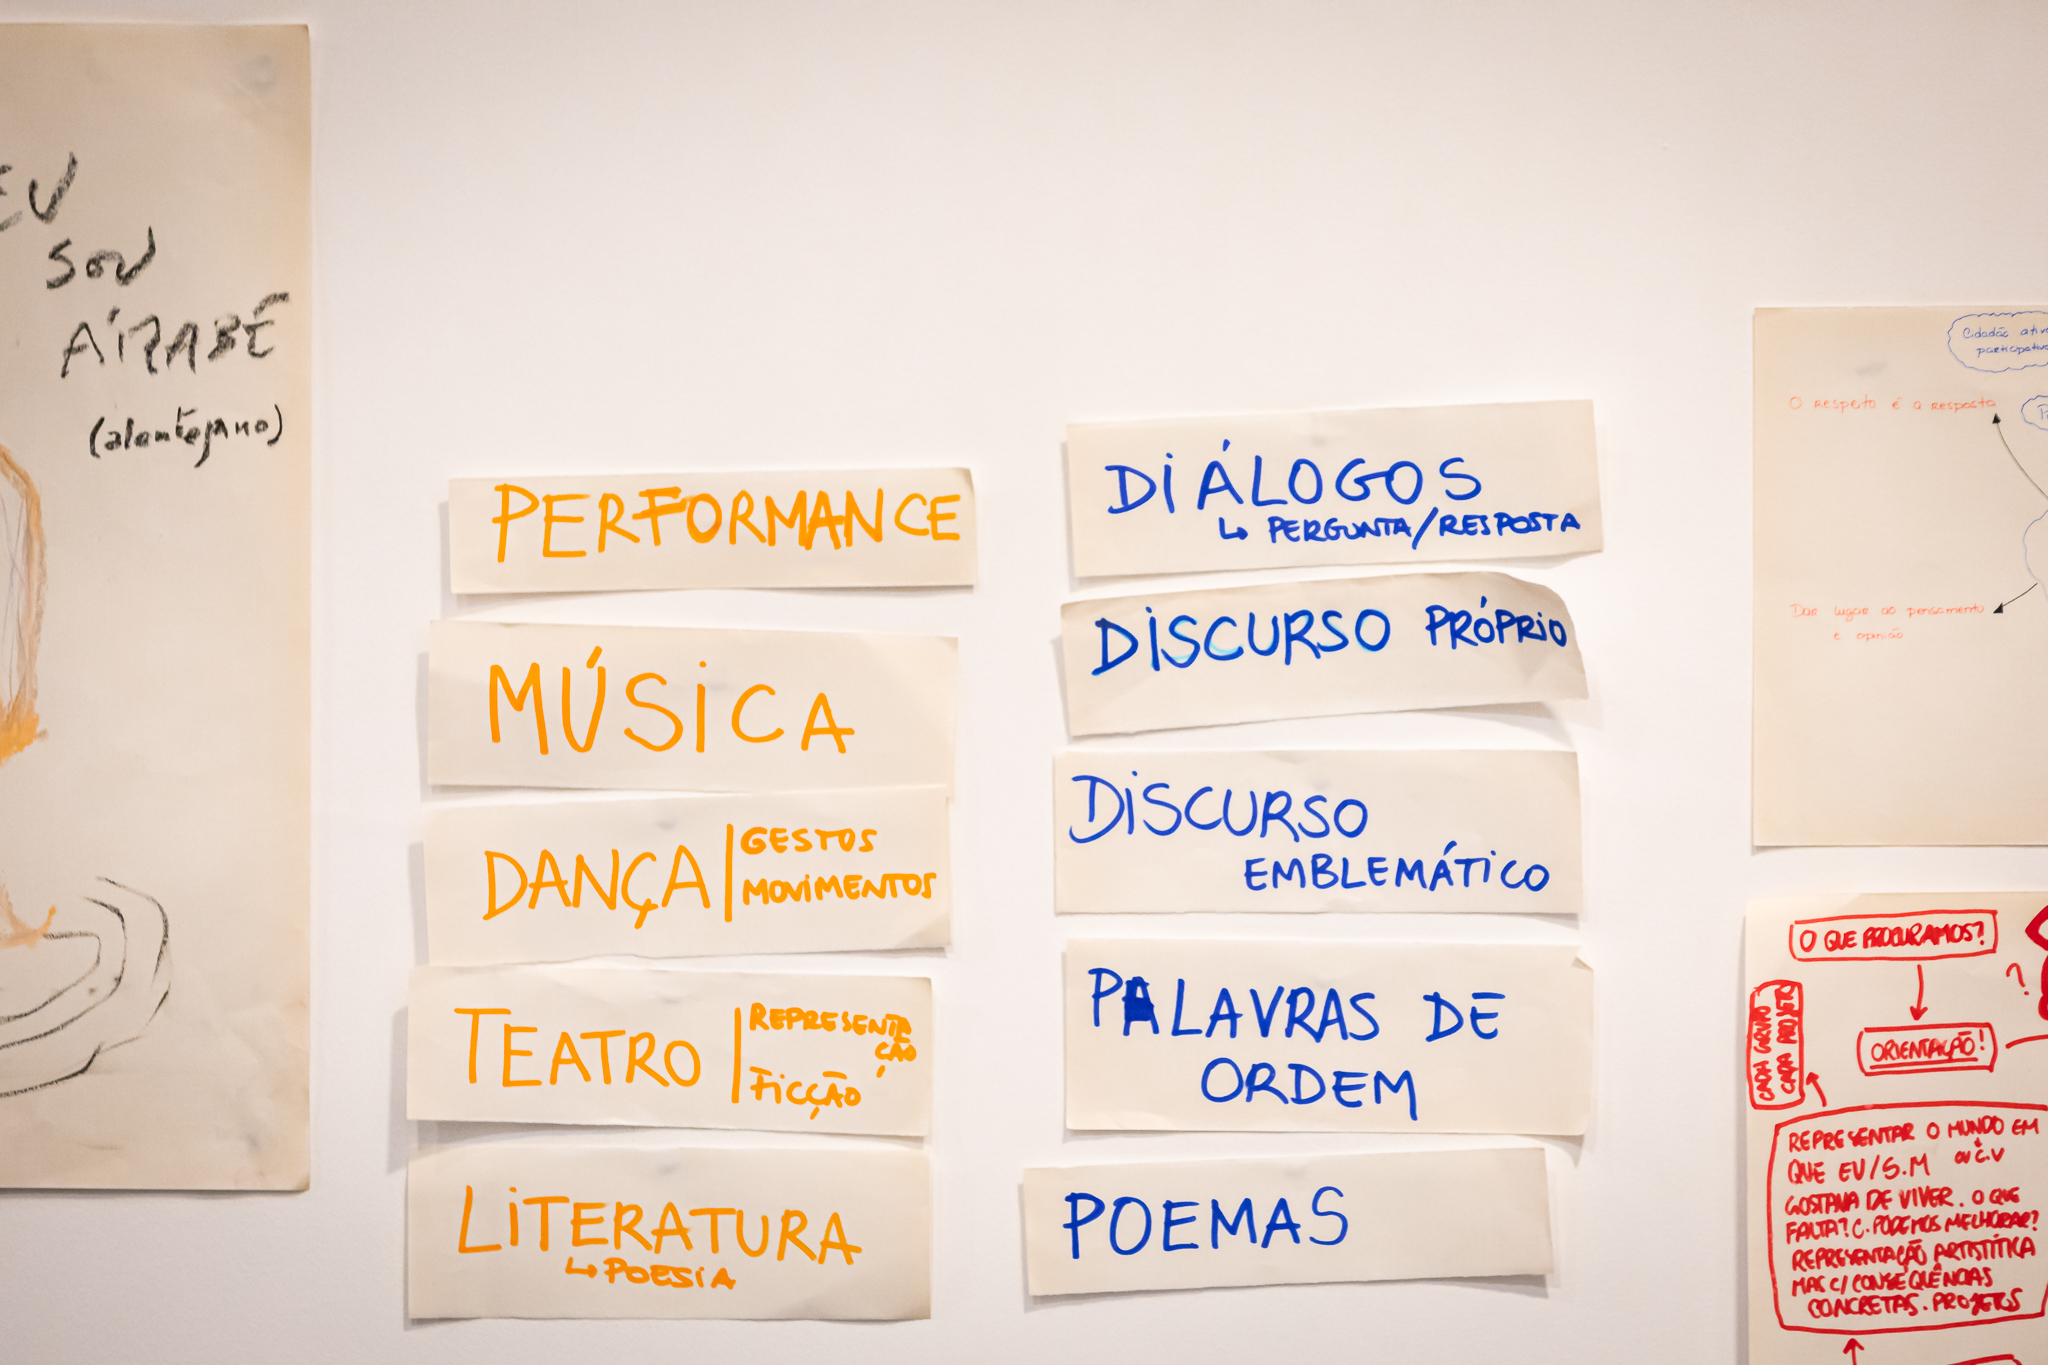 EU
SOU
AÍRABÉ
(alentejano)
PERFORMANCE
MÚSICA
DANÇA | GESTOS
MOVIMENTOS
TEATRO | REPRESENTA
ÇÃO
FICÇÃO
LITERATURA
↳ POESIA
DIÁLOGOS
↳ PERGUNTA/RESPOSTA
DISCURSO PRÓPRIO
DISCURSO
EMBLEMÁTICO
PALAVRAS DE
ORDEM
POEMAS
Cidadão
O respeito é a resposta
Dar lugar ao pensamento
e opinião
O QUE PROCURAMOS?
?
ORIENTAÇÃO!
CADA GRUPO
CADA PROJETO
REPRESENTAR O MUNDO EM
QUE EU/S.M OU C.V
GOSTAVA DE VIVER. O QUE
FALTA? C. PODEMOS MELHORAR?
REPRESENTAÇÃO ARTISTÍTICA
MAS C/ CONSEQUÊNCIAS
CONCRETAS. PROJETOS